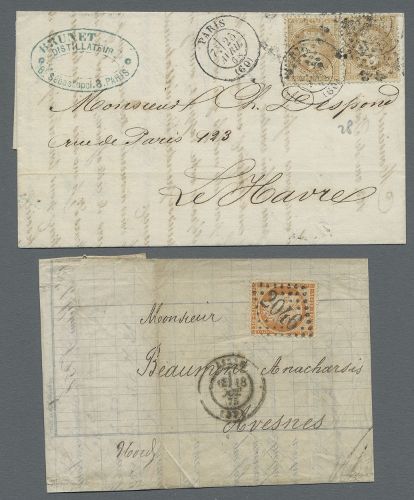 BRUNET
DISTILLATEUR
B. Sébastopol. 8. PARIS
PARIS
(60)
(60)
28
Monsieur Ch. Despond
rue de Paris 123
Le Havre
2040
Monsieur
Beaumont Anacharsis
18
75
Avesnes
Nord